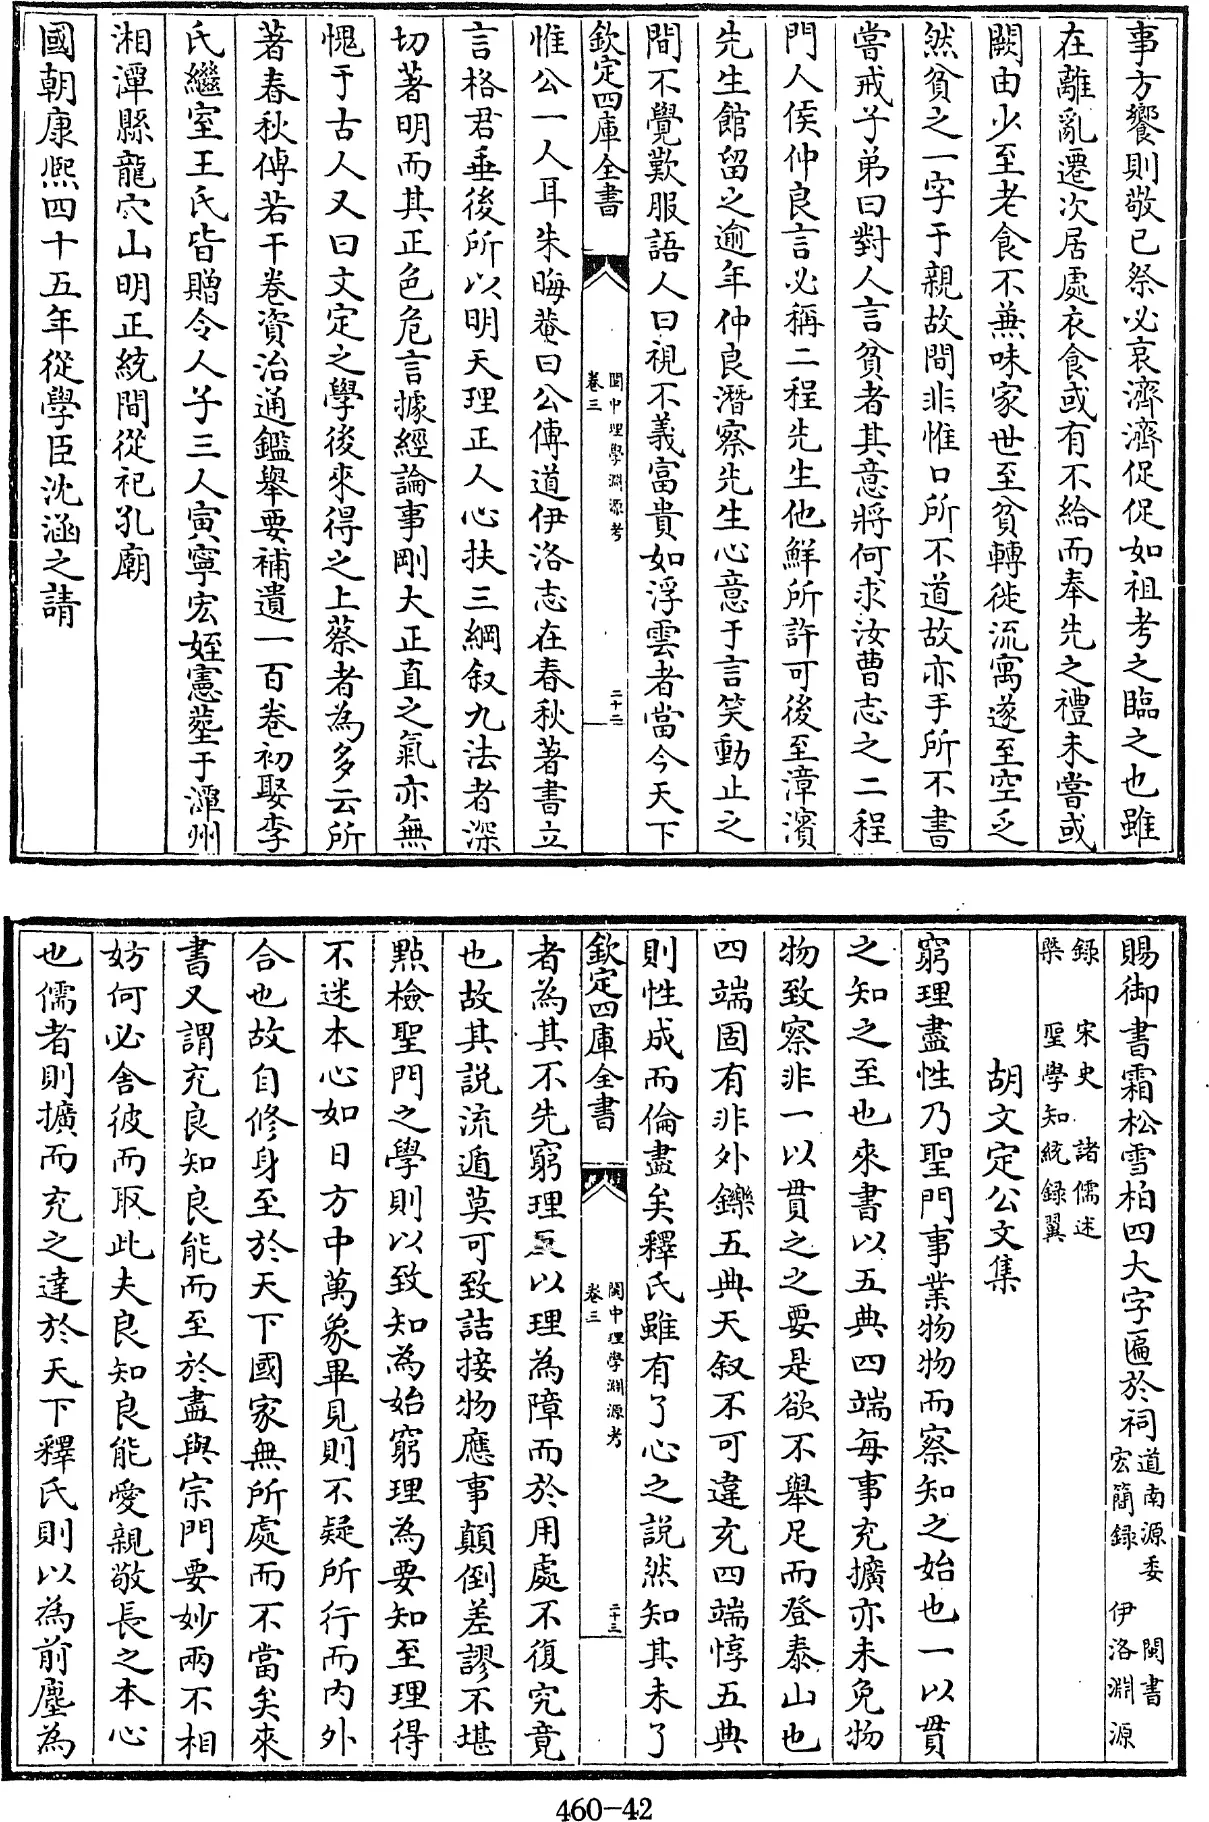 事方饗則敬已祭必哀濟濟促促如祖考之臨之也雖
在離亂遷次居處衣食或有不給而奉先之禮未嘗或
闕由少至老食不兼味家世至貧轉徙流寓遂至空乏
然貧之一字于親故間非惟口所不道故亦手所不書
嘗戒子弟曰對人言貧者其意將何求汝曹志之二程
門人侯仲良言必稱二程先生他鮮所許可後至漳濱
先生館留之逾年仲良潛察先生心意于言笑動止之
間不覺歎服語人曰視不義富貴如浮雲者當今天下
欽定四庫全書
閩中理學淵源考
卷三
二十二
惟公一人耳朱晦菴曰公傳道伊洛志在春秋著書立
言格君垂後所以明天理正人心扶三綱叙九法者深
切著明而其正色危言據經論事剛大正直之氣亦無
愧于古人又曰文定之學後來得之上蔡者為多云所
著春秋傳若干卷資治通鑑舉要補遺一百卷初娶李
氏繼室王氏皆贈令人子三人寅寧宏姪憲塟于潭州
湘潭縣龍穴山明正統間從祀孔廟
國朝康熙四十五年從學臣沈涵之請
賜御書霜松雪柏四大字匾於祠道南源委 閩書
宏簡録 伊洛淵源
録 宋史 諸儒述
槩 聖學知統録翼
胡文定公文集
窮理盡性乃聖門事業物物而察知之始也一以貫
之知之至也來書以五典四端每事充擴亦未免物
物致察非一以貫之之要是欲不舉足而登泰山也
四端固有非外鑠五典天叙不可違充四端惇五典
則性成而倫盡矣釋氏雖有了心之說然知其未了
欽定四庫全書
閩中理學淵源考
卷三
二十三
者為其不先窮理反以理為障而於用處不復究竟
也故其説流遁莫可致詰接物應事顛倒差謬不堪
點檢聖門之學則以致知為始窮理為要知至理得
不迷本心如日方中萬象畢見則不疑所行而内外
合也故自修身至於天下國家無所處而不當矣來
書又謂充良知良能而至於盡與宗門要妙兩不相
妨何必舍彼而取此夫良知良能愛親敬長之本心
也儒者則擴而充之達於天下釋氏則以為前塵為
460-42